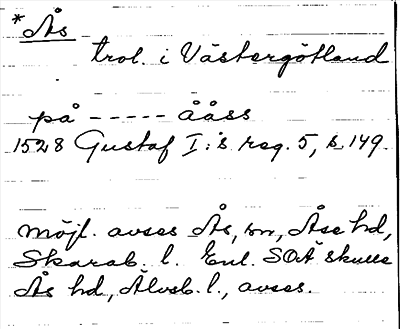 *Ås
trol. i Västergötland
på ----- ååss
1528 Gustaf I:s reg. 5, s. 149.
Möjl. avses Ås, sn, Åse hd,
Skarab. l. Enl. SOÄ skulle
Ås hd, Älvsb. l., avses.